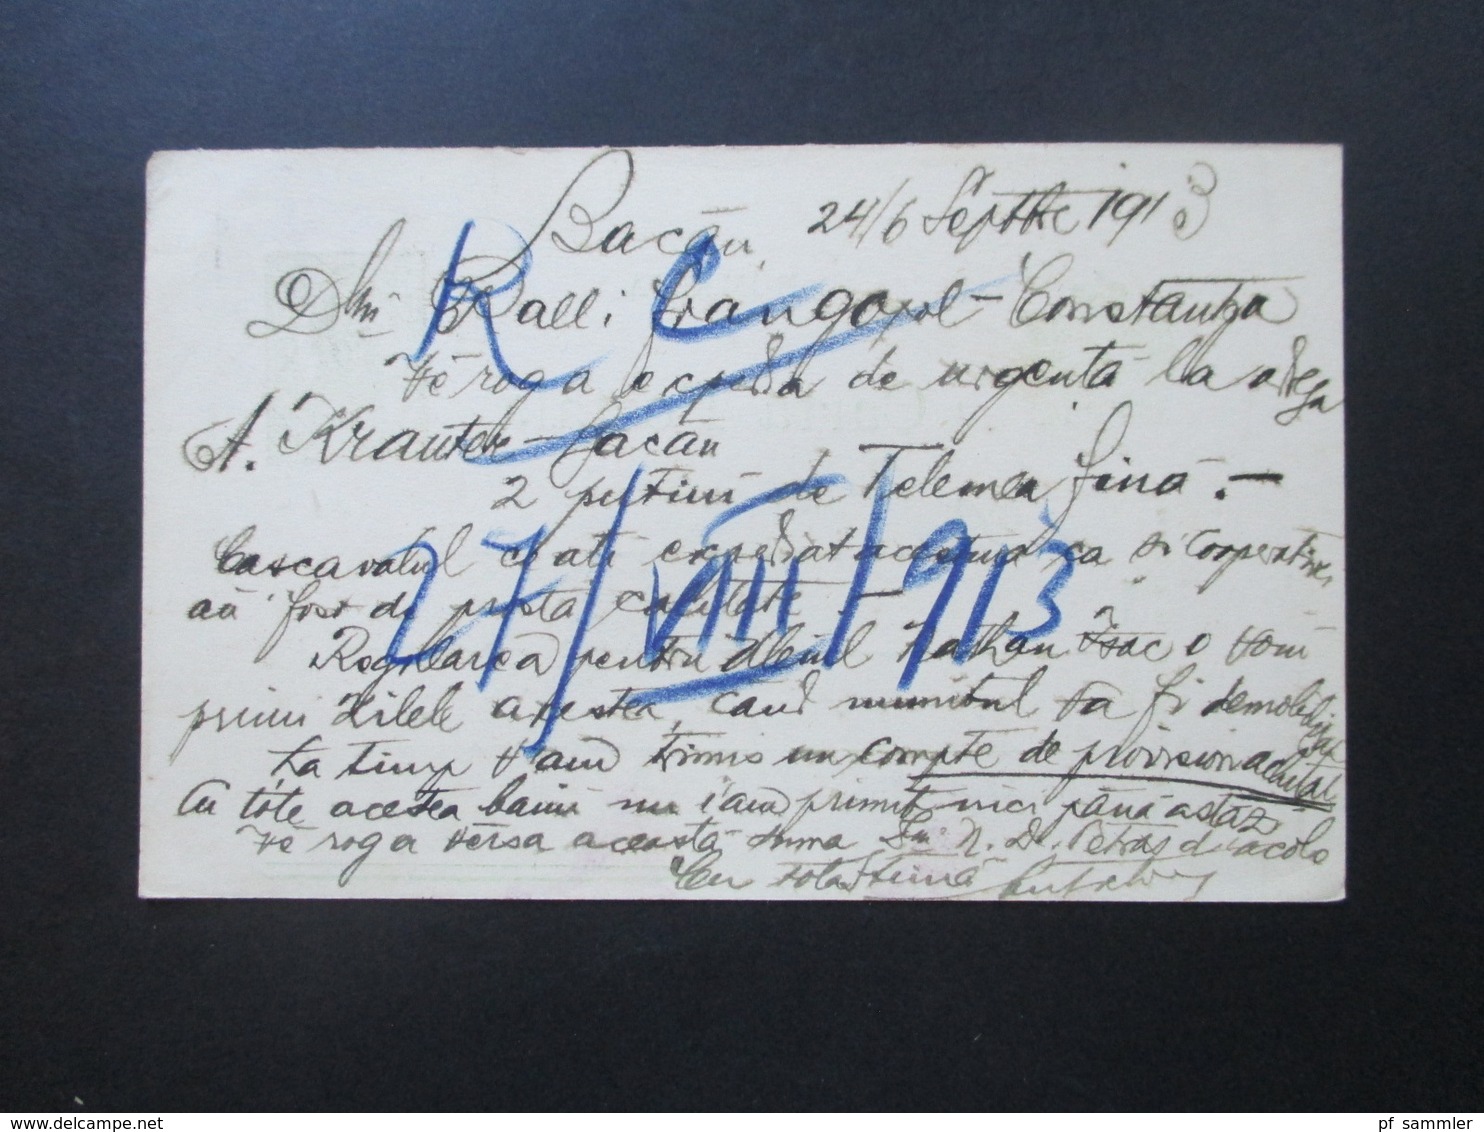 Bacău, 24/6 Septbre 1913
Dlui Ralli Frangopol – Constantza
Vĕ rog a expedia de urgență la adresa
A. Krauter – Bacău
2 putini de Telemea fină. –
Cascavalul ce ati expediat acestuia ca si Cooperativei
aŭ fost de prosta calitate. –
Regularea pentru Nathan Isac o vom
primi zilele acestea, cand numitul va fi demobilizat
La timp v'am trimis un compte de provision actual
Cu tóte acestea banii nu i'am primit nici până astăzi
Vĕ rog a vĕrsa aceastā suma Dlui N. D. Petraș d'acolo
Cu totă stima
R C
27/VIII/913
pf sammler